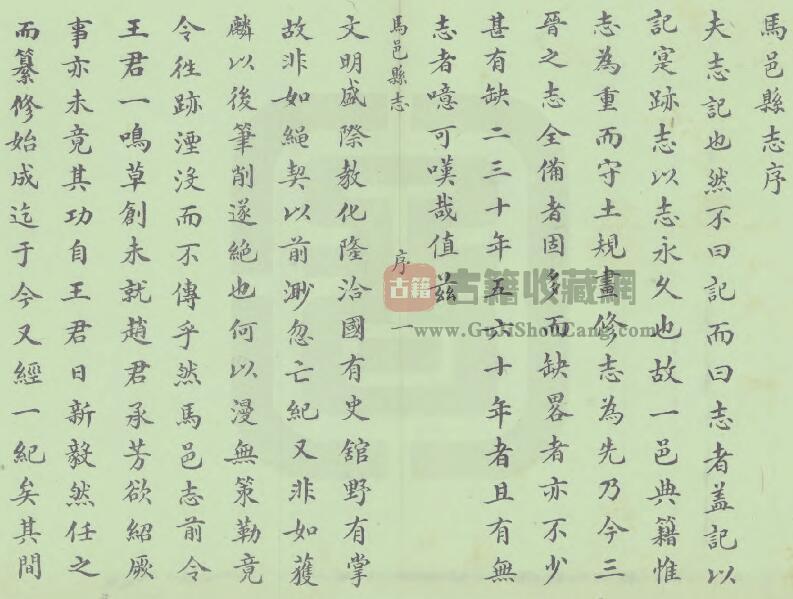 馬邑縣志序
夫志記也然不曰記而曰志者盖記以
記寔跡志以志永久也故一邑典籍惟
志為重而守土規畫修志為先乃今三
晉之志全備者固多而缺畧者亦不少
甚有缺二三十年五六十年者且有無
志者噫可嘆哉值兹
馬邑縣志 序 一
文明盛際教化隆洽國有史舘野有掌
故非如繩契以前渺忽亡紀又非如獲
麟以後筆削遂絶也何以漫無策勒竟
令徃跡湮沒而不傳乎然馬邑志前令
王君一鳴草創未就趙君承芳欲紹厥
事亦未竟其功自王君日新毅然任之
而纂修始成迄于今又經一紀矣其間
古籍 古籍收藏网
www.GuJiShouCang.com